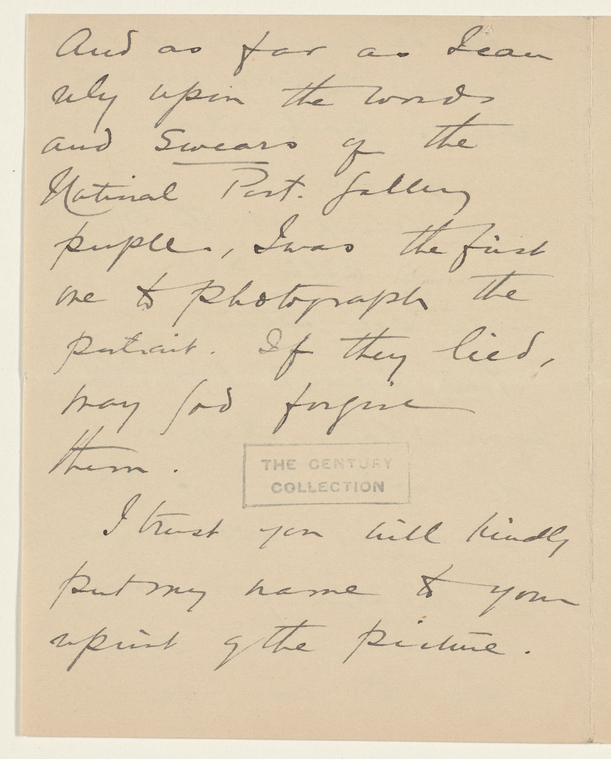 And as far as I can
rely upon the words
and swears of the
National Port. Gallery
people, I was the first
one to photograph the
portrait. If they lied,
may God forgive
them.
THE CENTURY
COLLECTION
I trust you will kindly
put my name to your
reprint of the picture.